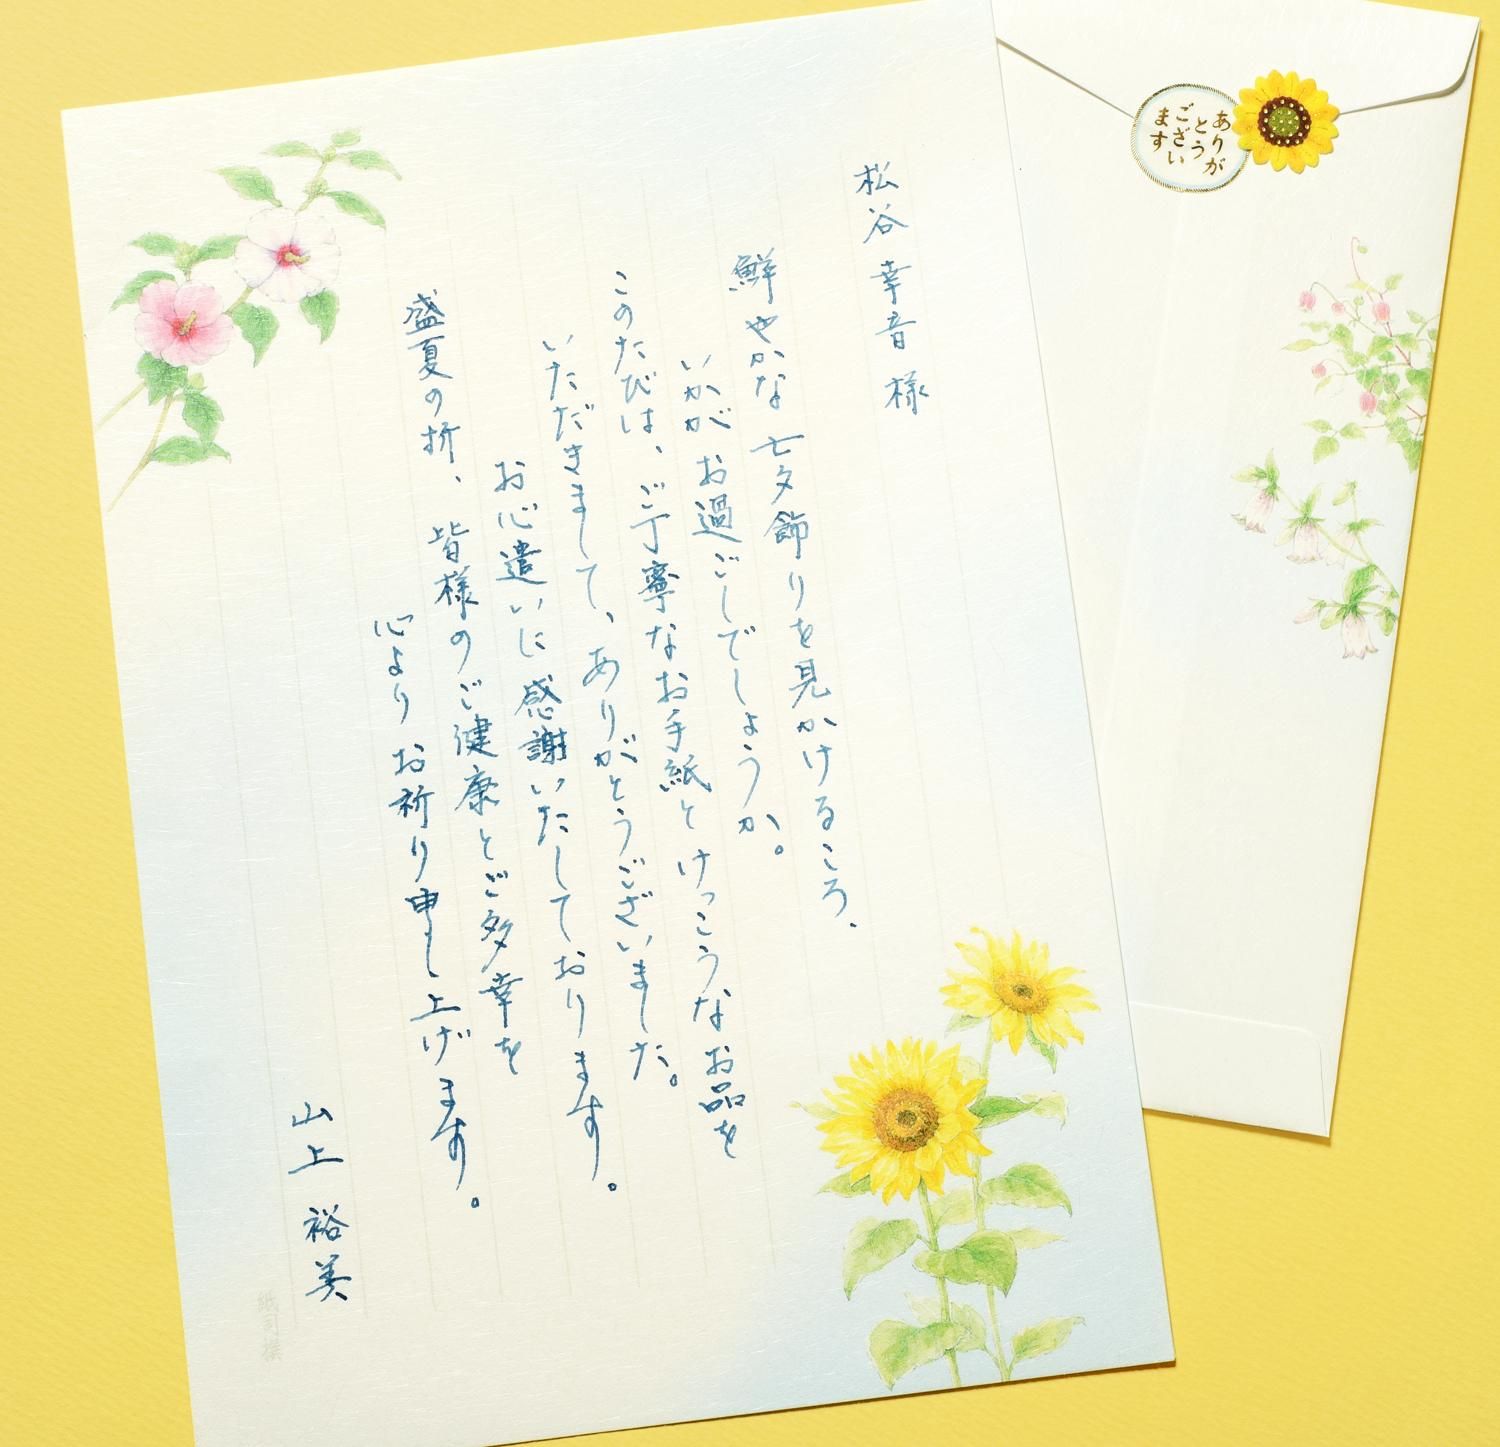 松谷幸音様
鮮やかな七夕飾りを見かけるころ、
いかがお過ごしでしょうか。
このたびは、ご丁寧なお手紙とけっこうなお品を
いただきまして、ありがとうございました。
お心遣いに感謝いたしております。
盛夏の折、皆様のご健康とご多幸を
心よりお祈り申し上げます。
山上裕美
ありが
とう
ござい
ます